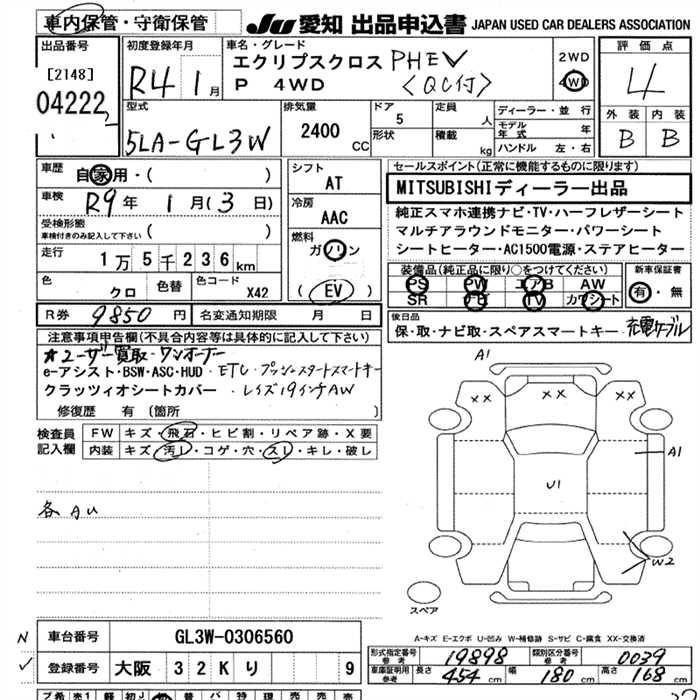 車内保管・守衛保管 JU 愛知 出品申込書 JAPAN USED CAR DEALERS ASSOCIATION
出品番号 初度登録年月 車名・グレード 評価点
[2148] R4 1月 エクリプスクロス PHEV 2WD 4
04222 P 4WD <QC付> 4WD
型式 排気量 ドア 定員 ディーラー・並行 外装 内装
5LA-GL3W 2400 CC 5 人 モデル年式 年 B B
形状 積載 kg ハンドル 左・右
車歴 自家用・( ) シフト セールスポイント(正常に機能するものに限ります)
AT MITSUBISHIディーラー出品
車検 R9年 1月(3日) 冷房
受検形態 AAC 純正スマホ連携ナビ・TV・ハーフレザーシート
車検付きのみ記入して下さい ( ) 燃料 マルチアラウンドモニター・パワーシート
走行 1万5千236km ガソリン シートヒーター・AC1500電源・ステアヒーター
色 クロ 色替 色コード X42 (EV) 装備品(純正品に限り○をつけてください) 新車保証書
PS PW エアB AW 有・無
SR ナビ TV カワシート
R券 9850円 名変通知期限 月 日 後日品
保・取・ナビ取・スペアスマートキー 充電ケーブル
注意事項申告欄(不具合内容等は具体的に記入して下さい)
★ユーザー買取・ワンオーナー
e-アシスト・BSW・ASC・HUD・ETC・プッシュスタートスマートキー
クラッツィオシートカバー・レイズ19インチAW
修復歴 有 (箇所 )
検査員記入欄 FW キズ・飛石・ヒビ割・リペア跡・X要
内装 キズ・汚レ・コゲ・穴・スレ・キレ・破レ
A1
XX XX XX
A1
U1
各AU
W2
スペア
A-キズ E-エクボ U-凹み W-補修跡 S-サビ C-腐食 XX-交換済
N 車台番号 GL3W-0306560
形式指定番号 参考 19898 類別区分番号 参考 0039
✓ 登録番号 大阪 32K り 9
車庫証明用 参考 長さ 454 cm 幅 180 cm 高さ 168 cm